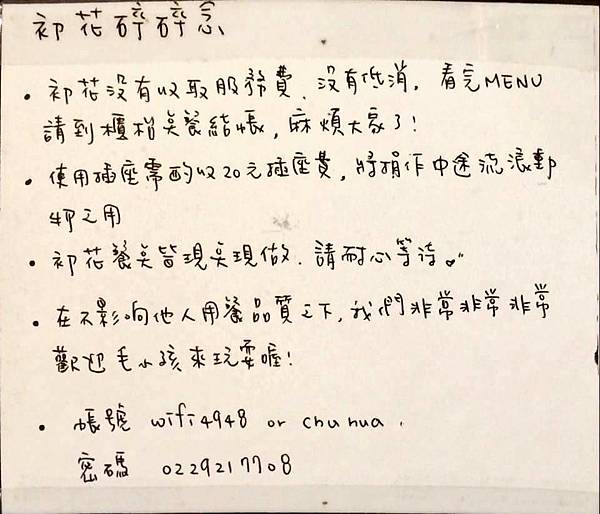 初花碎碎念
• 初花没有收取服務費、没有低消。看完MENU
請到櫃枱点餐結帳，麻煩大家了！
• 使用插座需酌收20元插座費，將捐作中途流浪動
物之用
• 初花餐点皆現点現做．請耐心等待。
• 在不影响他人用餐品質之下，我們非常非常非常
歡迎毛小孩來玩耍喔！
• 帳號 wifi4948 or chuhua．
密碼 0229217708